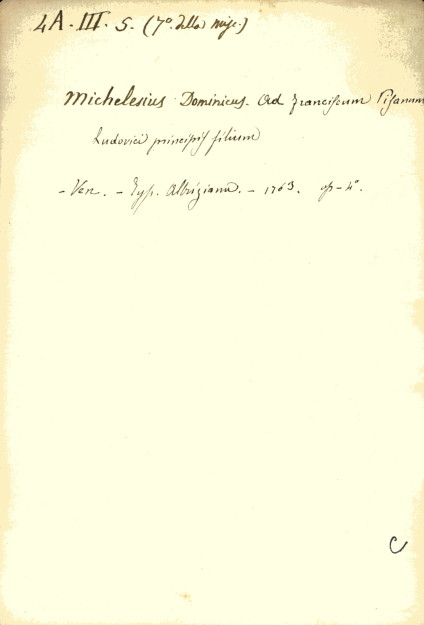 4A. III. 5. (7º. della Misc.)
Michelesius Dominicus. Ad Franciscum Pisanum
Ludovici principis filium
- Ven. - Typ. Albriziana. - 1763. op - 4º.
C